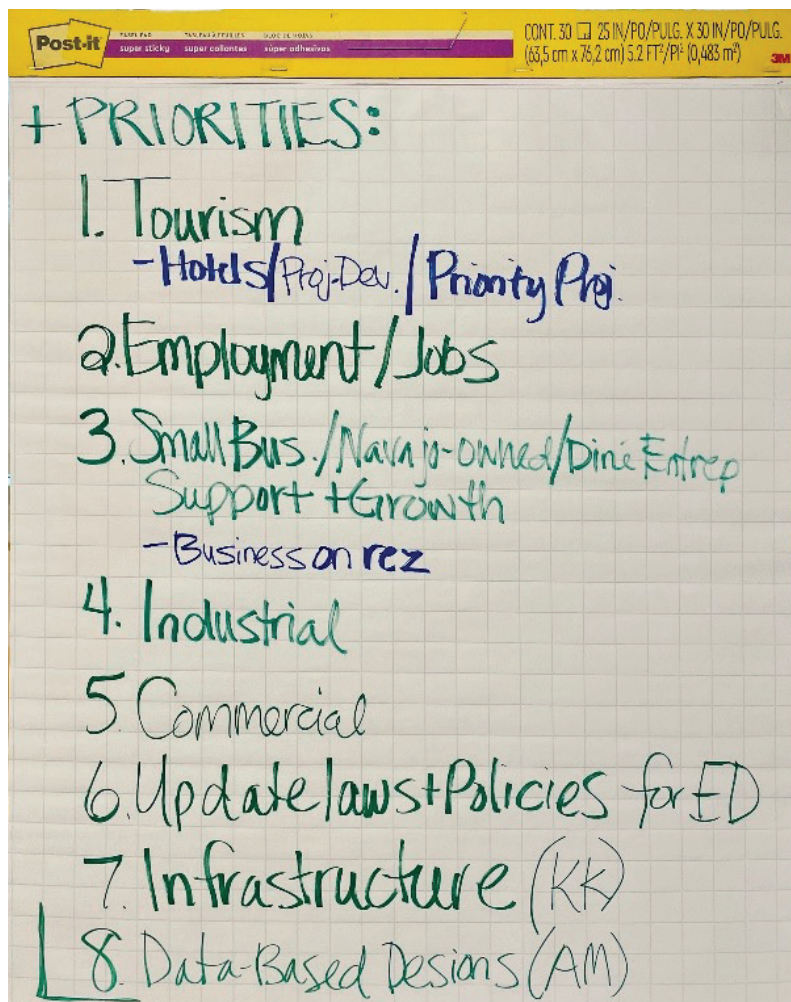 Post-it
TABLEAU À FEUILLES
BLOC DE HOJAS
super sticky super collantes súper adhesivos
CONT. 30 25 IN/PO/PULG. X 30 IN/PO/PULG.
(63,5 cm x 76,2 cm) 5.2 FT²/PI² (0,483 m²)
3M
+ PRIORITIES:
1. Tourism
- Hotels/Proj-Dev./Priority Proj.
2. Employment/Jobs
3. Small Bus./Navajo-owned/Diné Entrep
Support + Growth
- Business on rez
4. Industrial
5. Commercial
6. Update laws + Policies for ED
7. Infrastructure (KK)
8. Data-Based Desions (AM)